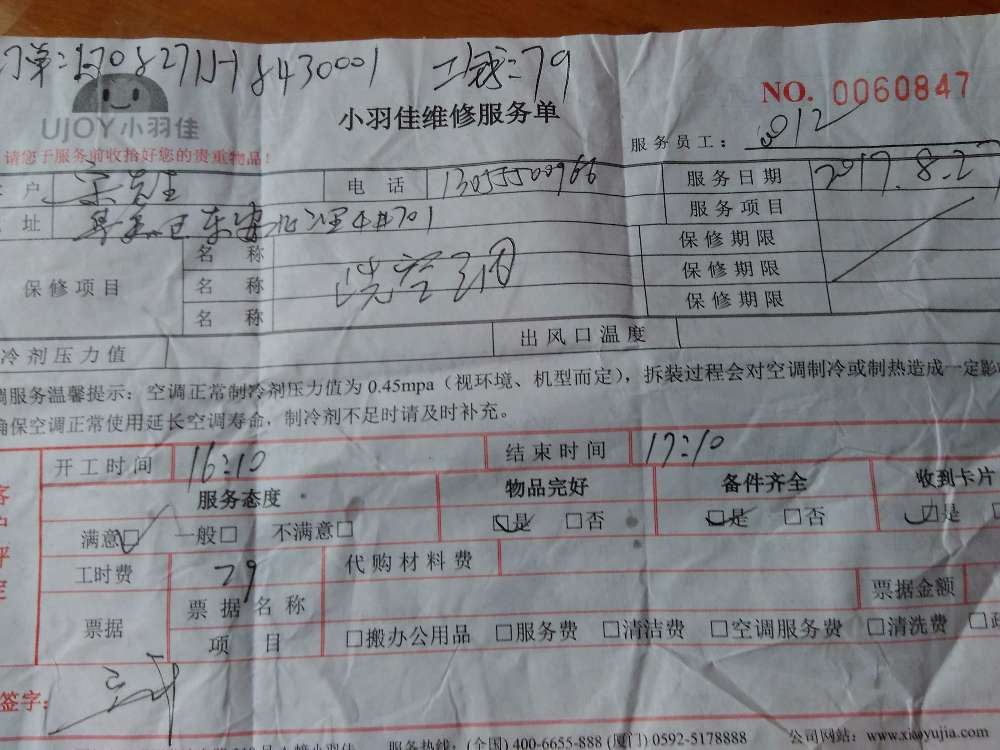 工钱:79
NO. 0060847
UJOY小羽佳
小羽佳维修服务单
服务员工: 012
请您于服务前收拾好您的贵重物品!
户 宋先生 电话 13055500966 服务日期 2017.8.27
址 701 服务项目
保修项目 名称 洗空调 保修期限
名称 保修期限
名称 保修期限
冷剂压力值 出风口温度
调服务温馨提示:空调正常制冷剂压力值为0.45mpa(视环境、机型而定),拆装过程会对空调制冷或制热造成一定影
确保空调正常使用延长空调寿命,制冷剂不足时请及时补充。
开工时间 16:10 结束时间 17:10
服务态度 物品完好 备件齐全 收到卡片
满意□ 一般□ 不满意□ □是 □否 □是 □否 □是
客户评定
工时费 79 代购材料费
票据 票据名称 票据金额
项目 □搬办公用品 □服务费 □清洁费 □空调服务费 □清洗费
签字:
服务热线:(全国) 400-6655-888 (厦门) 0592-5178888 公司网站:www.xiaoyujia.com